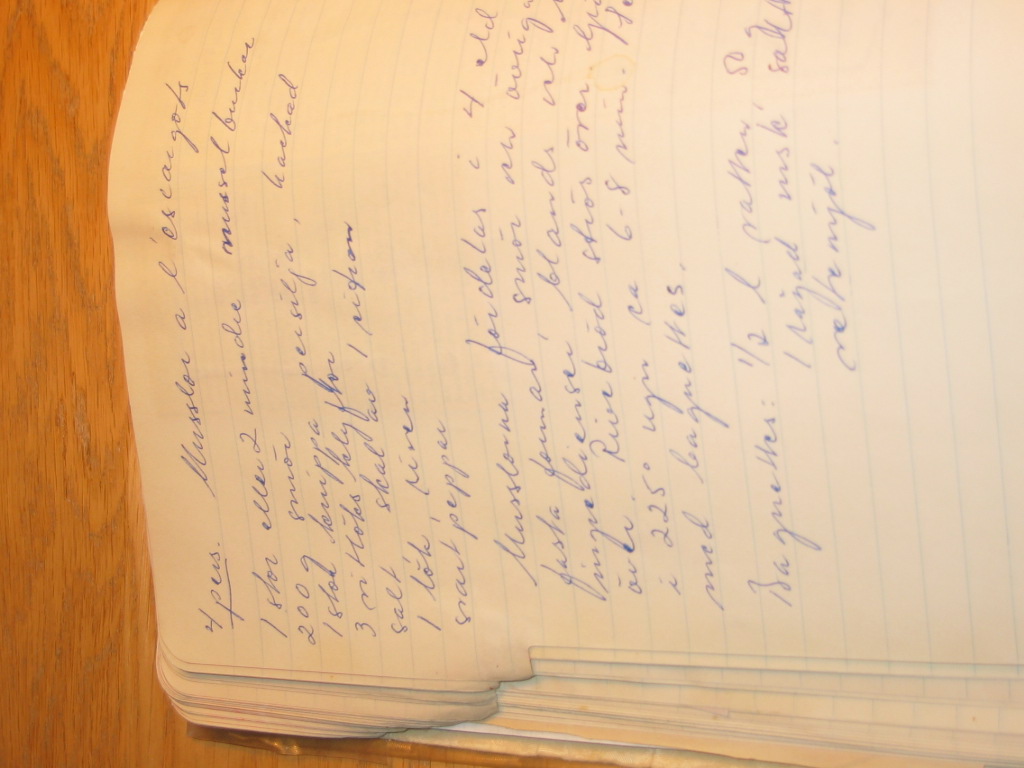 4 pers. Musslor a l'éscargots
1 stor eller 2 mindre musselburkar
200 g smör
1 stor knippa persilja, hackad
3 vitlöksklyftor
salt skal av 1 citron
1 lök, riven
svartpeppar
Musslorna fördelas i 4 eld
fasta formar, smör och övriga
ingredienser blandas och
över. Rivebröd strös över
i 225° ugn ca 6-8 min.
med baguettes.
Baguettes: 1/2 l vatten, 50
1 msk salt
vetemjöl.